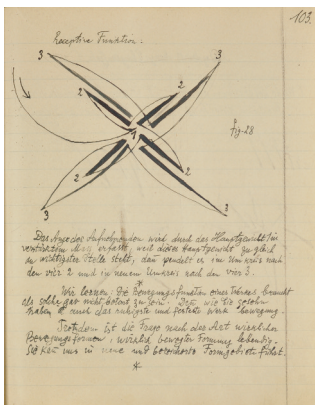 103.
Receptive Funktion.
3
3
2
2
1
Fig. 28
2
2
3
3
Das Auge des Aufnehmenden wird durch das Hauptgewicht in
verstärktem Mass erfasst, weil dieses Hauptgewicht zugleich
an wichtigster Stelle steht, dann pendelt es im Umkreis nach
den vier 2 und in neuem Umkreis nach den vier 3.
*
Wir lernen: die Bewegungsfunktion eines Werkes braucht
als solche gar nicht betont zu sein. Denn wie Sie gesehen
haben auch das ruhigste und festeste Werk Bewegung.
Trotzdem ist die Frage nach der Art wirklicher
Bewegungsformen, wirklich bewegter Formung lebendig.
Sie uns in neue und besondere Formgebiete führt.
*